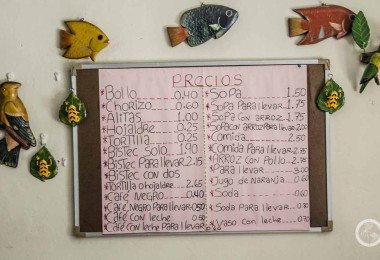 PRECIOS
*Bollo 0.40
*Chorizo 0.60
*Alitas 1.00
*Hojaldre 0.25
*Tortilla 0.25
*Bistec Solo 1.90
*Bistec Para llevar 2.15
*Bistec con dos
*Tortilla o hojaldre 2.65
*Café Negro 0.40
*Café Negro Para llevar 0.50
*Café con leche 0.50
*Café con leche Para llevar 0.60
*Sopa 1.50
*Sopa Para llevar 1.75
*Sopa con arroz 1.75
*Sopa con arroz Para llevar 2.00
*Comida 2.50
*Comida Para llevar 2.75
*Arroz con Pollo 2.75
*Para llevar 3.00
*Jugo de Naranja 0.60
*Soda 0.60
*Soda Para llevar 0.70
*Vaso con leche 0.70